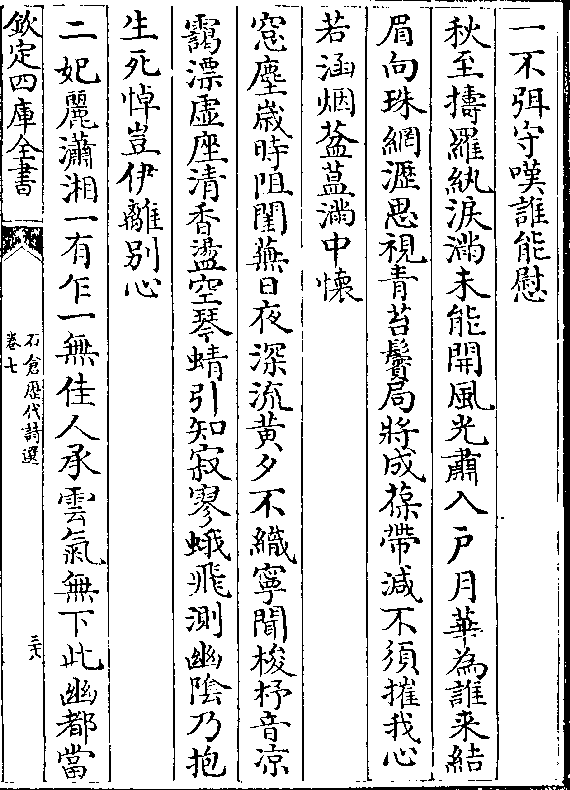 一不弭守嘆誰能慰
秋至擣羅紈淚滿未能開風光肅入戶月華為誰来結
眉向珠網瀝思視青苔鬢局將成葆帶減不須摧我心
若涵烟葢蒀滿中懷
窓塵嵗時阻閨蕪日夜深流黄夕不織寧聞梭杼音凉
靄漂虚座清香盪空琴蜻引知寂寥蛾飛測幽陰乃抱
生死悼豈伊離别心
二妃麗瀟湘一有乍一無佳人承雲氣無下此幽都當
欽定四庫全書
石倉歴代詩選
卷七
三十八